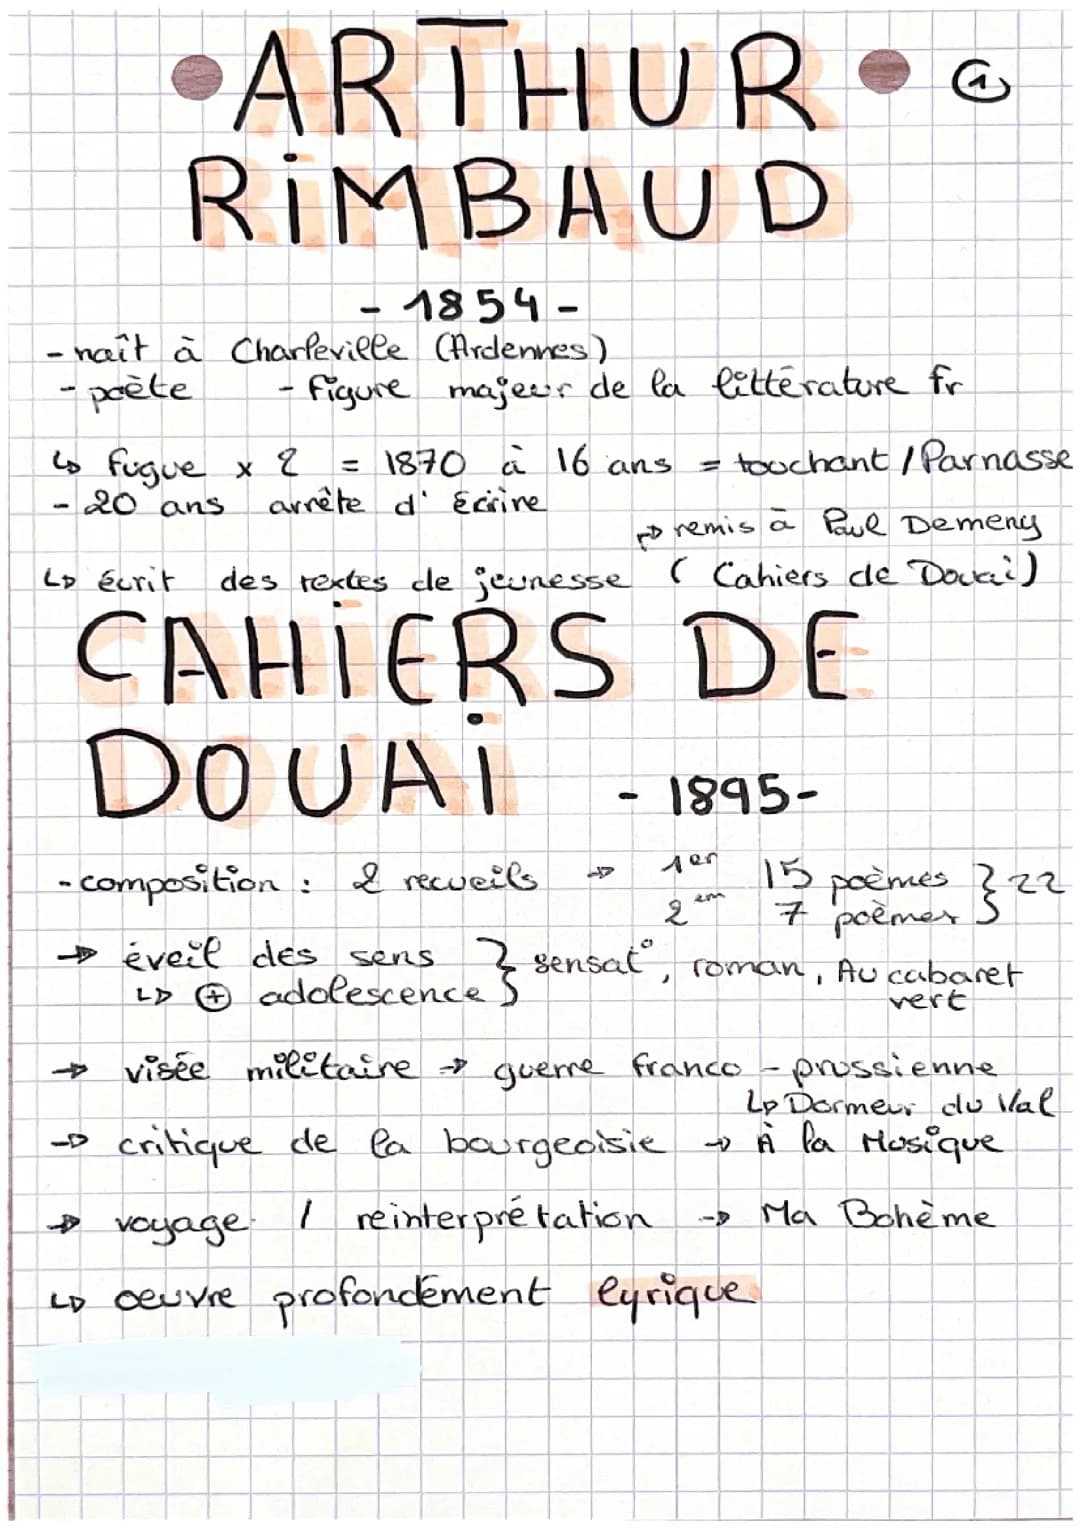 • ARTHUR • 1
RiMBAUD
- 1854 -
- naît à Charleville (Ardennes)
- poète - figure majeur de la littérature fr
↳ fugue x 2 = 1870 à 16 ans = touchant / Parnasse
- 20 ans arrête d'écrire
↱ remis à Paul Demeny
↳ écrit des textes de jeunesse (Cahiers de Douai)
CAHiERS DE
DOUAi - 1895-
- composition : 2 recueils → 1er 15 poèmes } 22
2em 7 poèmes
→ éveil des sens } sensat°, roman, Au cabaret
↳ ⊕ adolescence vert
→ visée militaire → guerre franco - prussienne
↳ Dormeur du Val
→ critique de la bourgeoisie → À la Musique
→ voyage / reinterprétation → Ma Bohème
↳ oeuvre profondément lyrique